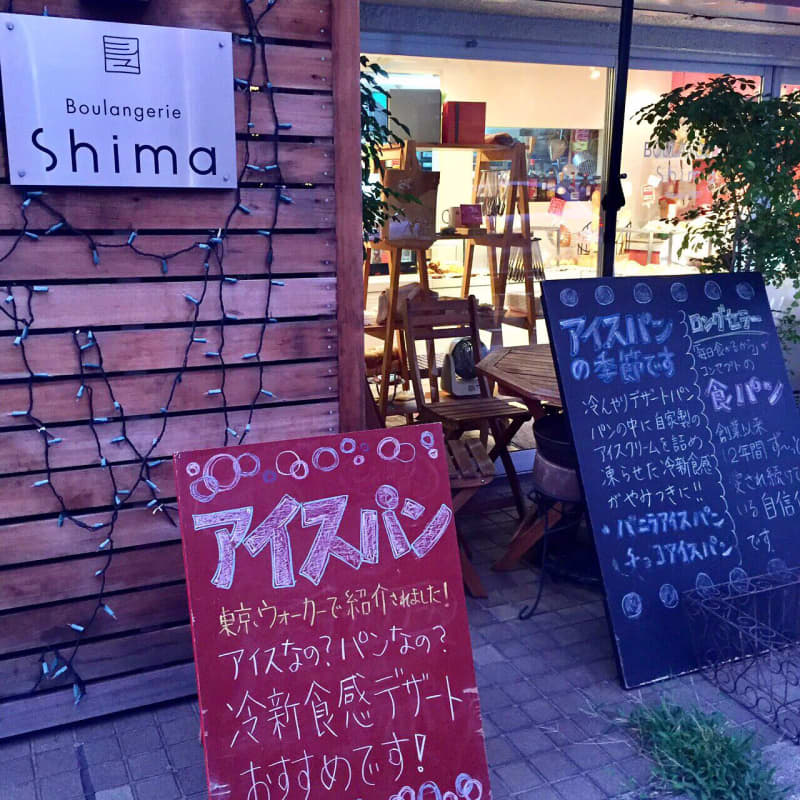 Boulangerie
Shima
Boulangerie
Shima
アイスパン
東京ウォーカーで紹介されました!
アイスなの?パンなの?
冷新食感デザート
おすすめです!
アイスパン
の季節です
冷んやりデザートパン
パンの中に自家製の
アイスクリームを詰め
凍らせた冷新食感
がやみつきに!!
・バニラアイスパン
チョコアイスパン
ロングセラー
「毎日食べるから」が
コンセプトの
食パン
創業以来
12年間ずっと
され続けて
いる自信
です。